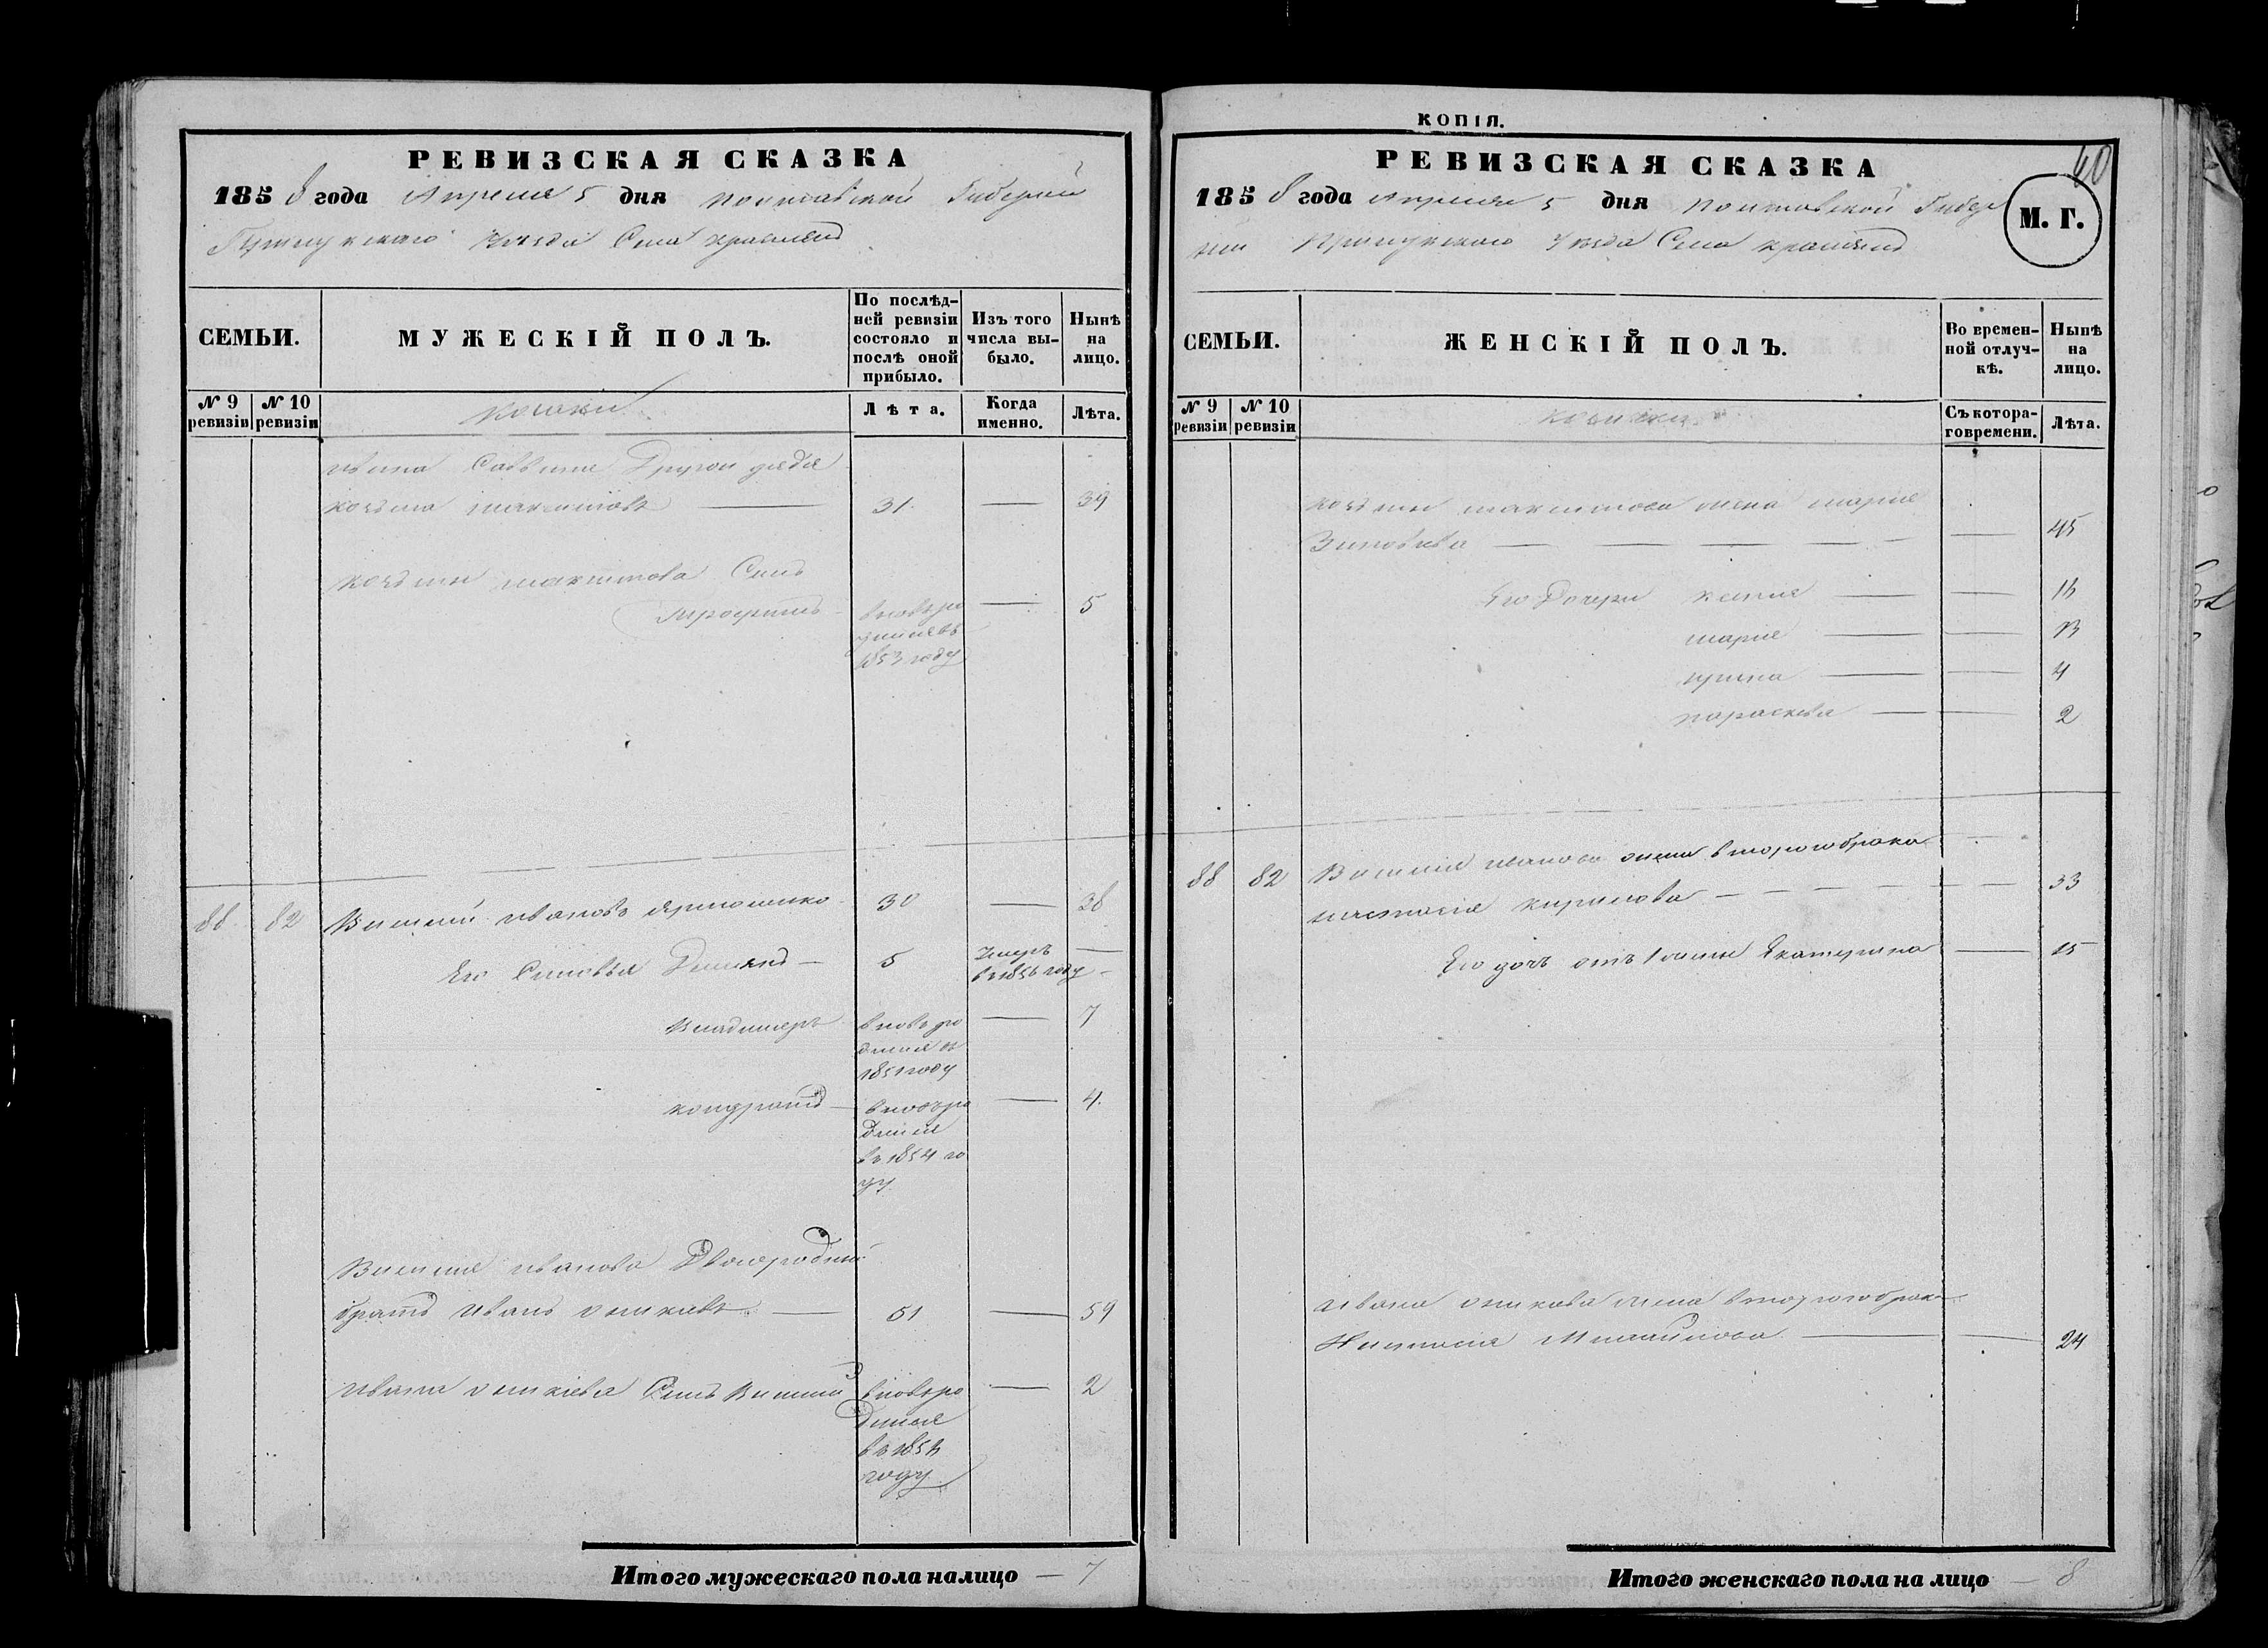 РЕВИЗСКАЯ СКАЗКА
1858 года Апреля 5 дня Полтавской Губернии
Прилуцкаго Уезда Села
СЕМЬИ.
МУЖЕСКІЙ ПОЛЪ.
По послѣд-
ней ревизіи
состояло и
послѣ оной
прибыло.
Изъ того
числа вы-
было.
Нынѣ
на
лицо.
№ 9
ревизіи
№ 10
ревизіи
козаки
Лѣта.
Когда
именно.
Лѣта.
Ивана Саввина Другой дядя
козьма максимовъ — 31. — 39
козьмы максимова Сынъ
Трофимъ вновь ро — 5
1853 году
88 82 Василий ивановъ 30 — 38
Его Сыновья Демьянъ — 5 Умеръ —
в 1856 году
Владимеръ вновь ро — 7
дился в
1851 году
кондратъ — вновь ро — 4.
дился
въ 1854 го
ду
Василия иванова Двоюродный
братъ Иванъ — 51 — 59
Ивана Сынъ Василий вновь ро — 2
дился
въ
году
Итого мужескаго пола налицо — 7
КОПІЯ.
РЕВИЗСКАЯ СКАЗКА
60
М. Г.
1858 года Апреля 5 дня Полтавской Губер
нии Прилуцкаго Уезда Села
СЕМЬИ.
ЖЕНСКІЙ ПОЛЪ.
Во времен-
ной отлуч-
кѣ.
Нынѣ
на
лицо.
№ 9
ревизіи
№ 10
ревизіи
Съ котора-
го времени.
Лѣта.
козьмы максимова жена мария
Зиновиева — 45
Его Дочери —
мария —
ирина — 4
параскева — 2
88 82 Василия иванова жена второго брака
настасия кирилова — 33
Его дочь отъ 1 жены Екатерина — 15
Ивана жена второго брака
Настасия Михайлова — 24
Итого женскаго пола на лицо — 8